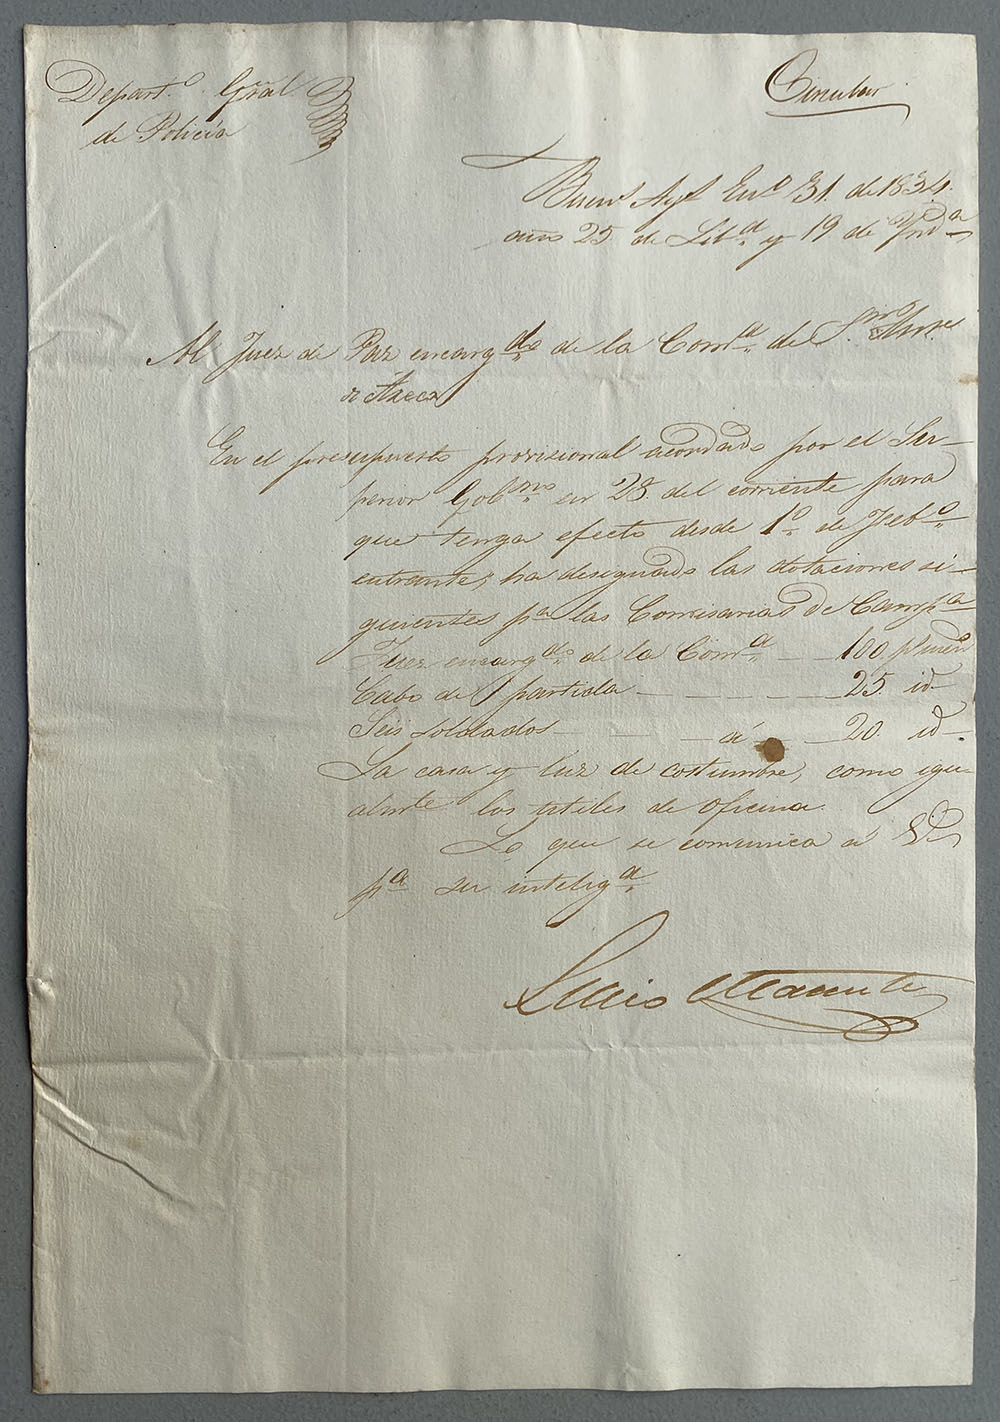 Depart.º Gral
de Policía
Circular
Buen.s Ay.s En.º 31. de 1834.
año 25 de Lib.d y 19 de Ynd.a
Al Juez de Paz encarg.do de la Com.a de S.n
de Areco
En el presupuesto provisional acordado por el Su-
perior Gob.no en 28 del corriente para
que tenga efecto desde 1.º de Feb.º
entrante, ha designado las dotaciones si-
guientes p.a las Comisarias de Camp.a
Juez encarg.do de la Com.a — 100 p.s men.s
Cabo de partida — — — — 25. id.
Seis soldados — — — á — 20. id.
La casa y luz de costumbre, como igu-
almte los utiles de oficina.
Lo que se comunica a Vd.
p.a su intelig.a